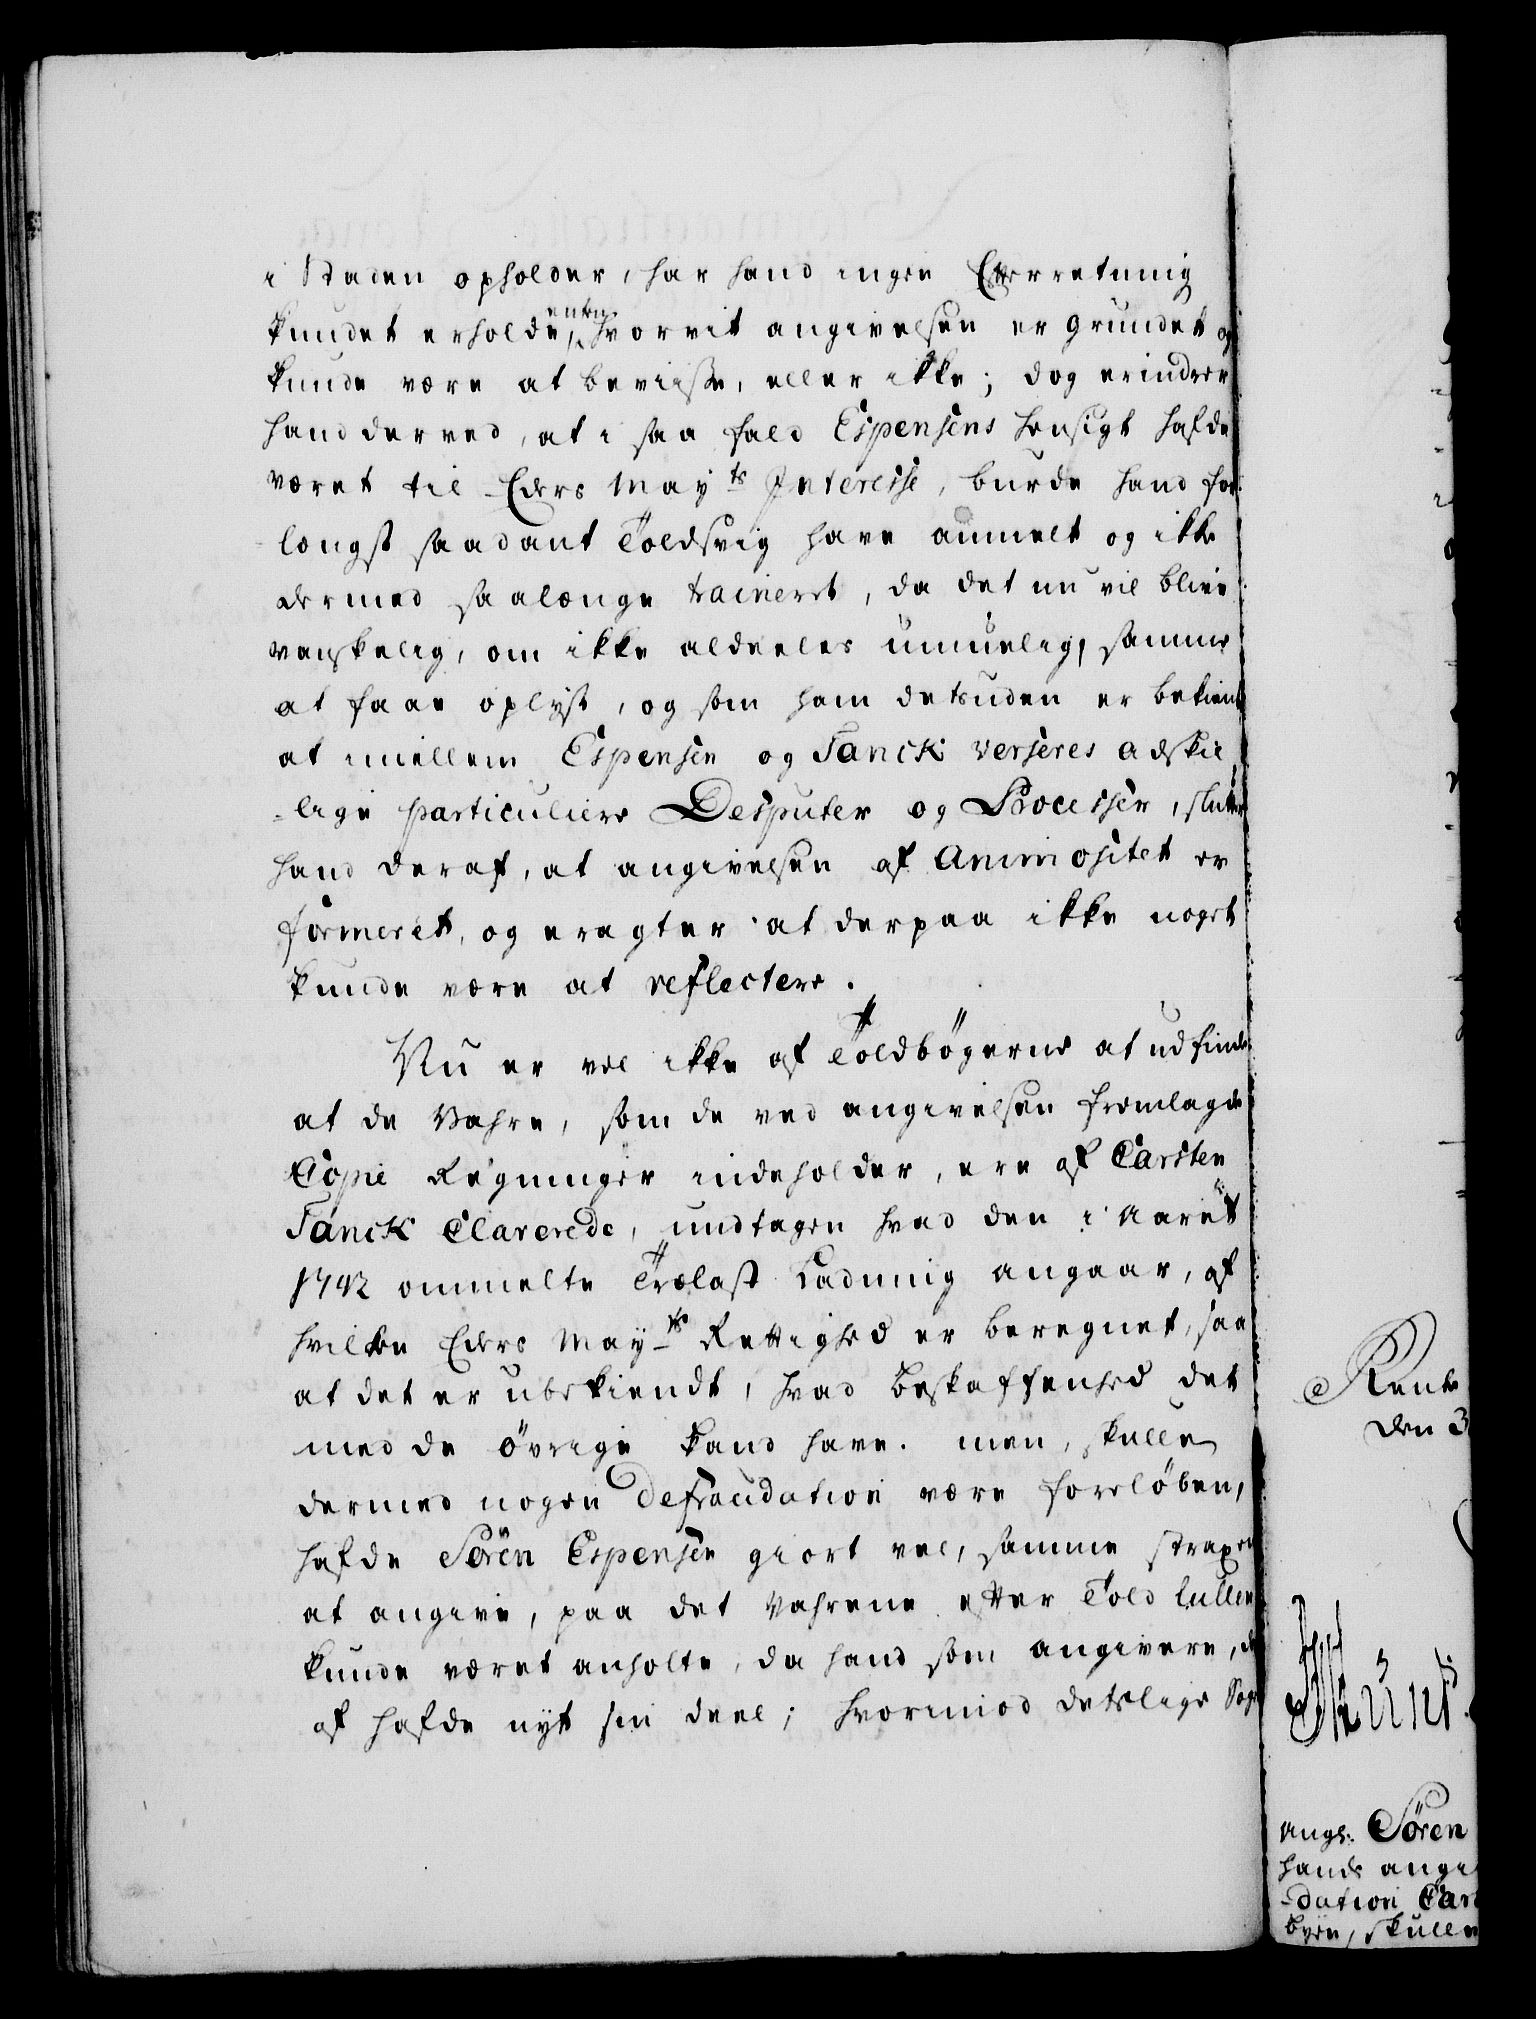 i Staden opholder, har hand ingen Efterretning
kundet erholde, enten hvorvit angivelsen er grundet og
kunde være at beviise, eller ikke; dog erindrer
hand derved, at i saa fald Espensens hensigt hafde
været til Eders May.ts Interesse, burde hand for
længst saadant Toldsvig have anmelt og ikke
dermed saalænge traineret, da det nu vil blive
vanskelig, om ikke aldeeles umuelig, samme
at faae oplyst, og som ham desuden er bekient
at imellem Espensen og Tanck verseres adskil
-lige particuliere Disputer og Processer, slutter
hand deraf, at angivelsen af Animositet er
formeret, og eragter at derpaa ikke noget
kunde være at reflectere.
Nu er vel ikke af Toldbögerne at udfinde
at de Vahre, som de ved angivelsen fremlagde
Copie Regninger indeholder, ere af Carsten
Tanck Clarerede, undtagen hvad den i Aaret
1742 ommelte Trælast Ladning angaar, af
hvilken Eders May.ts Rettighed er beregnet, saa
at det er ubekiendt, hvad beskaffenhed det
med de övrige kand have. men, skulle
dermed nogen Defraudation være foreløben,
hafde Sören Espensen giort vel, samme straxen
at angive, paa det Vahrene efter Told Rullen
kunde været anholte, da hand som angivere, der
af hafde nyt sin deel; hvorimod deslige Sag
Rente
den 3
angl. Søren
hands angi
-dation Car
byen, skulle